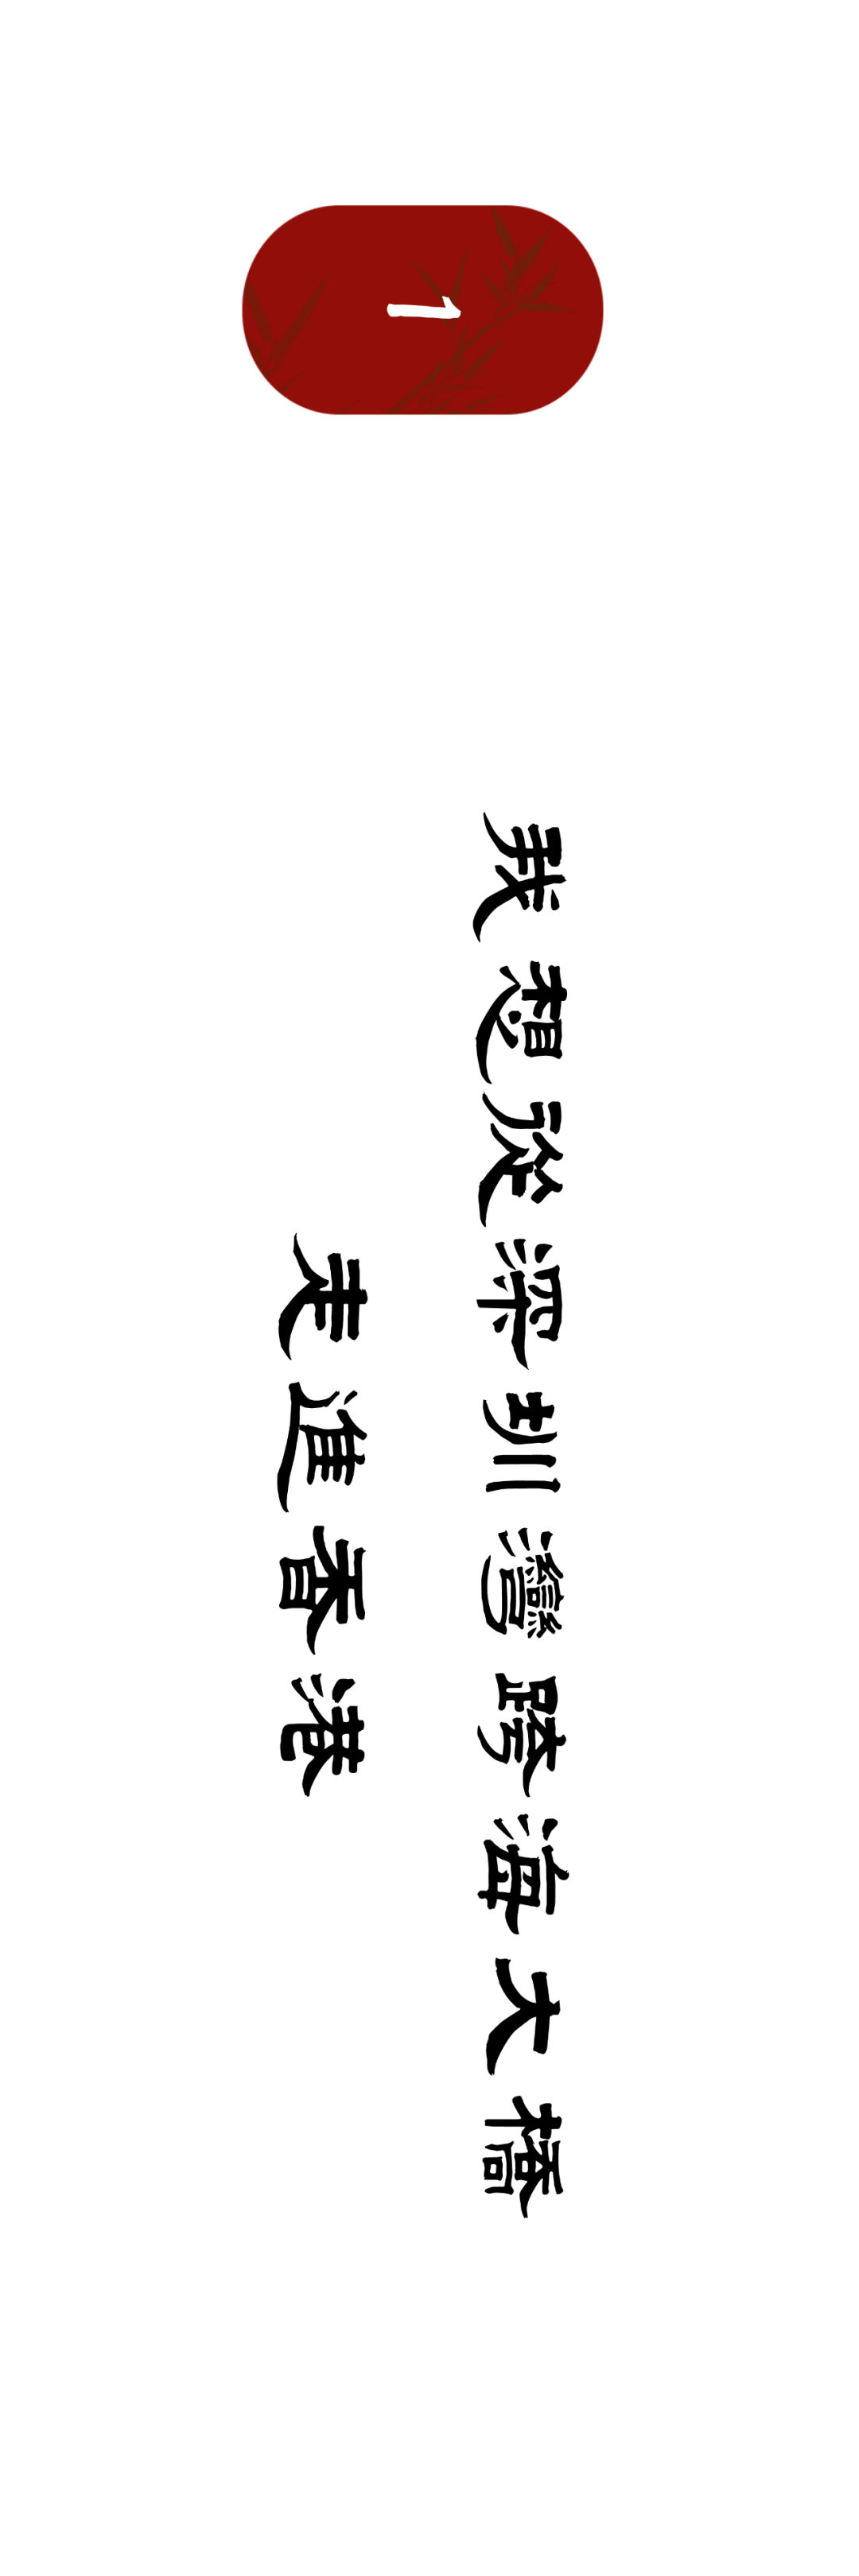 1
我想從深圳灣跨海大橋
走進香港